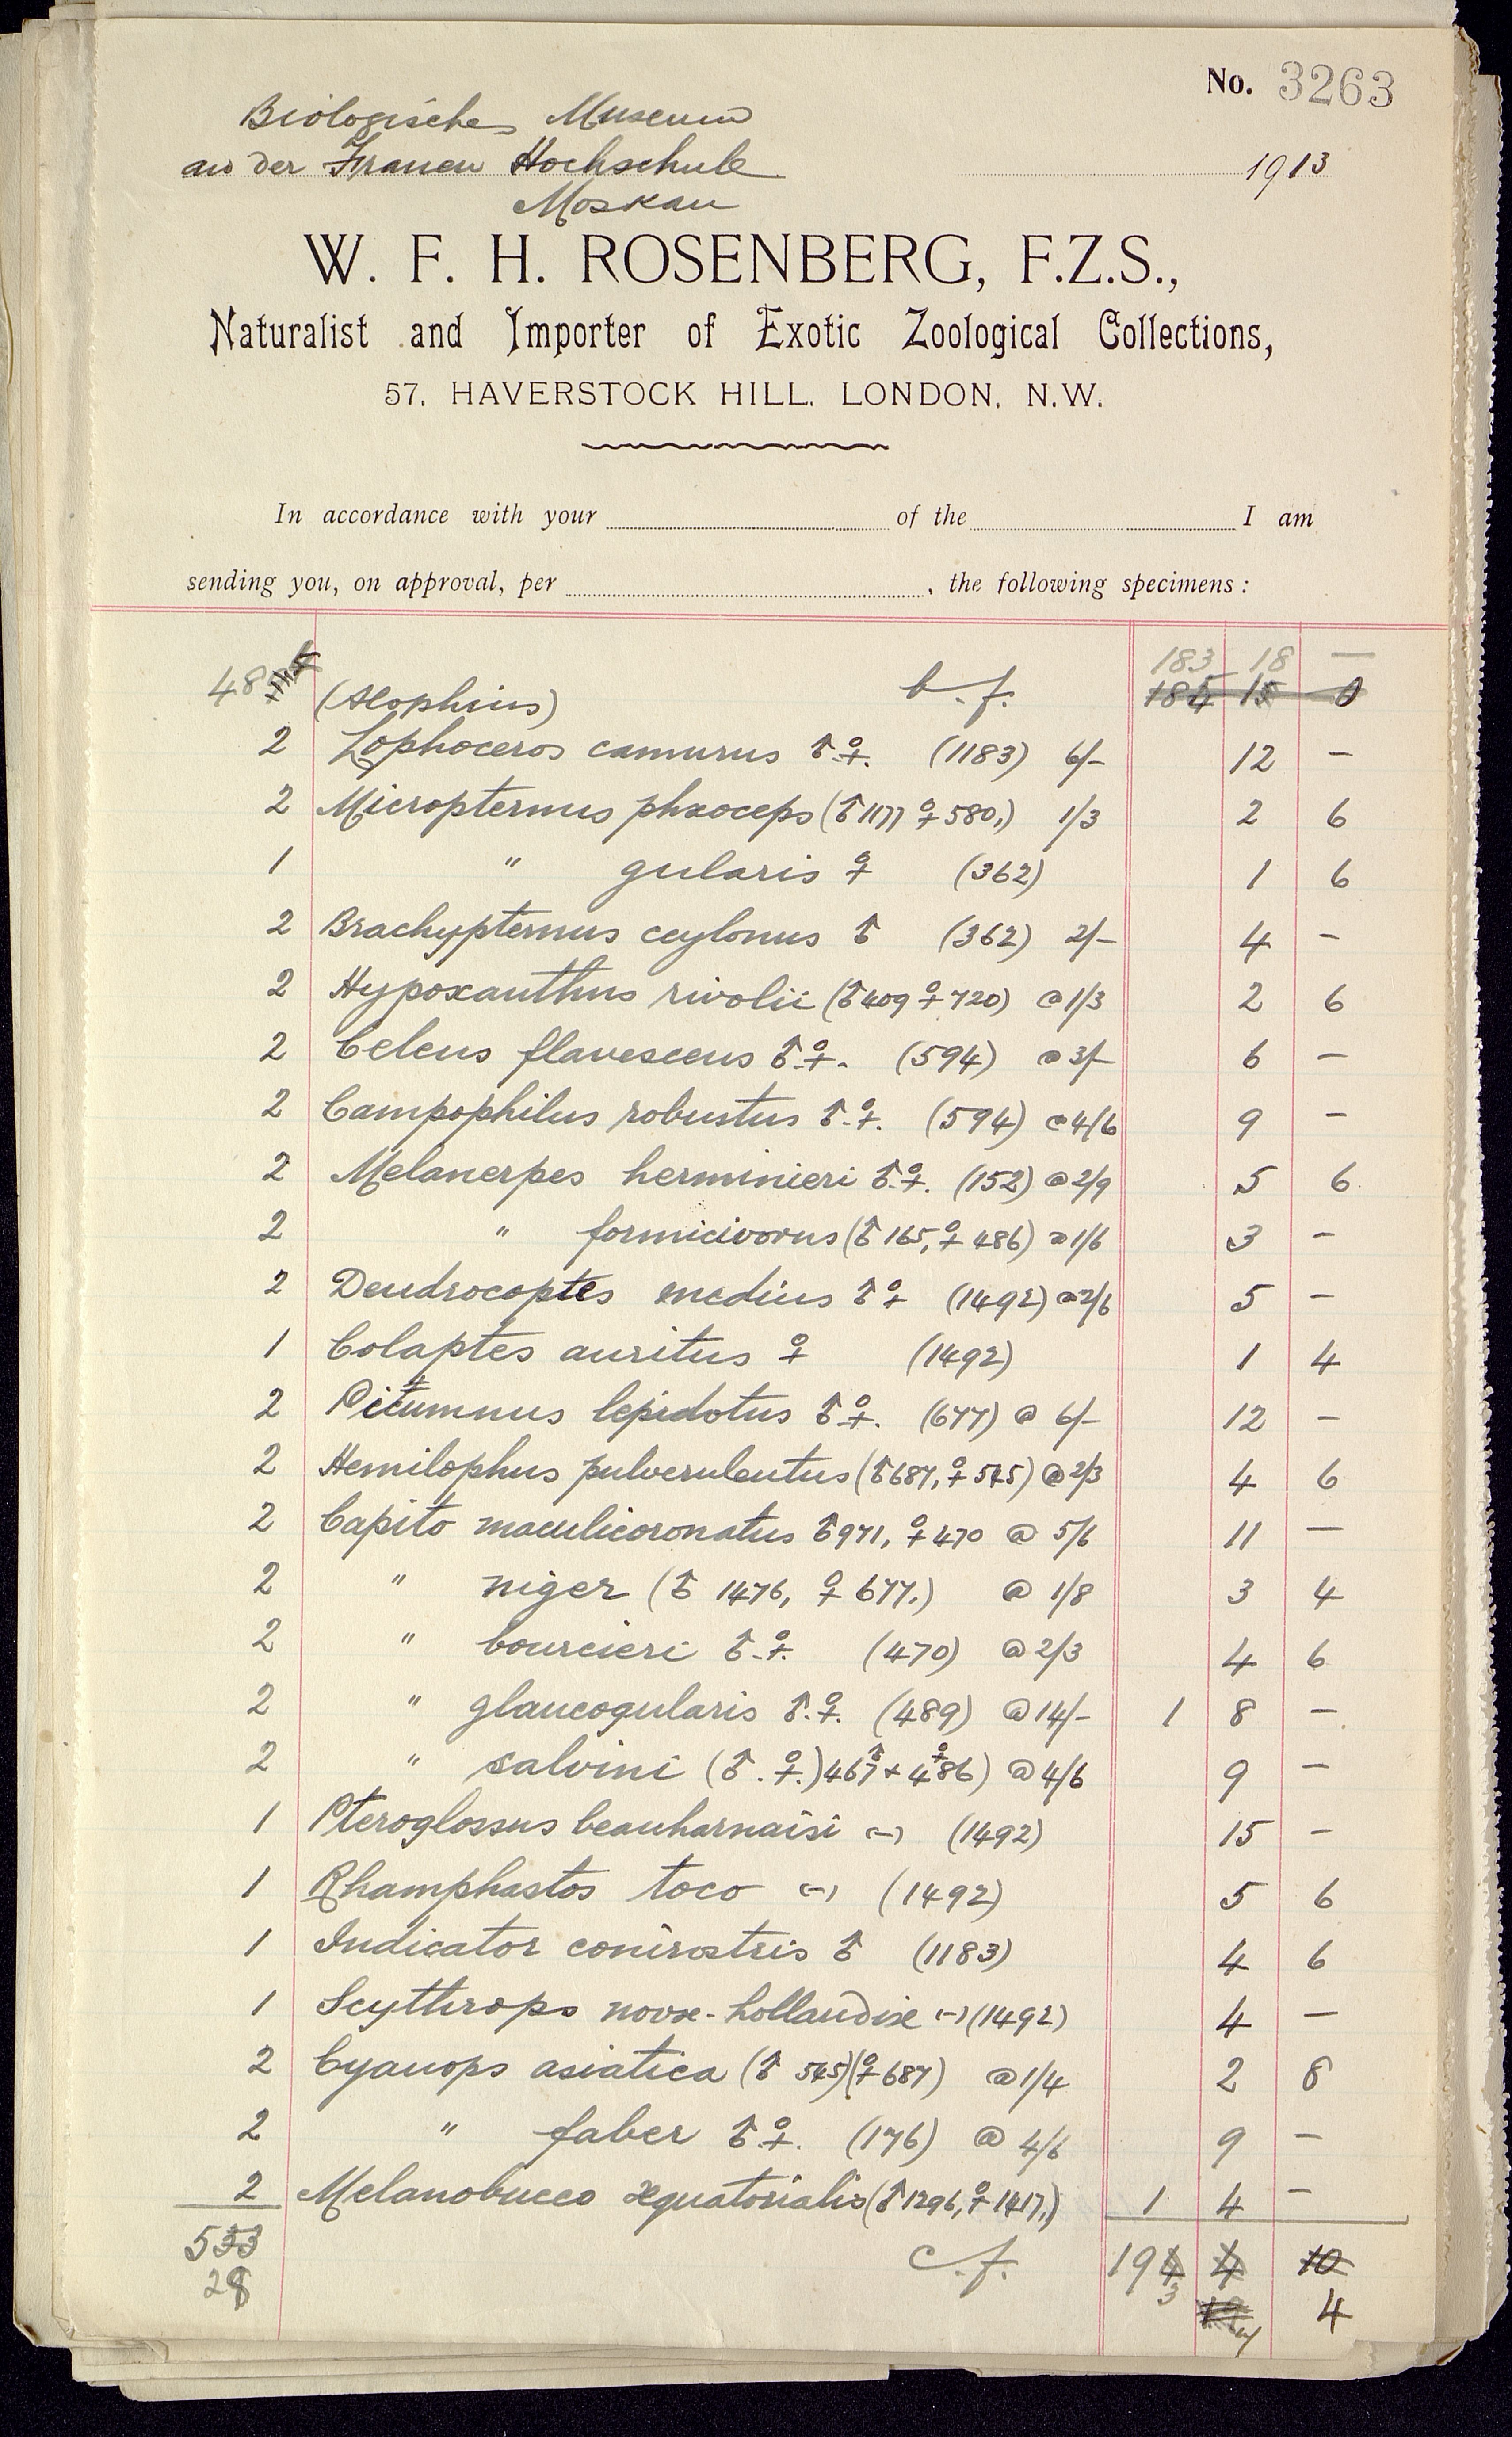 No. 3263
Biologisches Museum
an der Frauen Hochschule 1913
Moskau
W. F. H. ROSENBERG, F.Z.S.,
Naturalist and Importer of Exotic Zoological Collections,
57, HAVERSTOCK HILL, LONDON, N.W.
In accordance with your of the I am
sending you, on approval, per , the following specimens:
183 18 —
48 (Alophius) b.f. 184 15 0
2 Lophoceros camurus ♂.♀. (1183) 6/- 12 —
2 Micropternus phæoceps (♂ 1177 ♀ 580,) 1/3 2 6
1 " gularis ♀ (362) 1 6
2 Brachypternus ceylonus ♂ (362) 2/- 4 —
2 Hypoxanthus rivolii (♂ 409 ♀ 720) @ 1/3 2 6
2 Celeus flavescens ♂.♀. (594) @ 3/- 6 —
2 Campophilus robustus ♂.♀. (594) @ 4/6 9 —
2 Melanerpes herminieri ♂.♀. (152) @ 2/9 5 6
2 " formicivorus (♂ 165, ♀ 486) @ 1/6 3 —
2 Dendrocoptes medius ♂ ♀ (1492) @ 2/6 5 —
1 Colaptes auritus ♀ (1492) 1 4
2 Picumnus lepidotus ♂.♀. (677) @ 6/- 12 —
2 Hemilophus pulverulentus (♂ 687, ♀ 545) @ 2/3 4 6
2 Capito maculicoronatus ♂ 971, ♀ 470 @ 5/6 11 —
2 " niger (♂ 1476, ♀ 677.) @ 1/8 3 4
2 " bourcieri ♂.♀. (470) @ 2/3 4 6
2 " glaucogularis ♂.♀. (489) @ 14/- 1 8 —
2 " salvini (♂.♀.) 467♂ + 486♀) @ 4/6 9 —
1 Pteroglossus beauharnaisi (-) (1492) 15 —
1 Rhamphastos toco (-) (1492) 5 6
1 Indicator conirostris ♂ (1183) 4 6
1 Scythrops novæ-hollandiæ (-) (1492) 4 —
2 Cyanops asiatica (♂ 545) (♀ 687) @ 1/4 2 8
2 " faber ♂.♀. (176) @ 4/6 9 —
2 Melanobucco æquatorialis (♂ 1296, ♀ 1417,) 1 4 —
533 c.f. 194 4 10
28 3 4